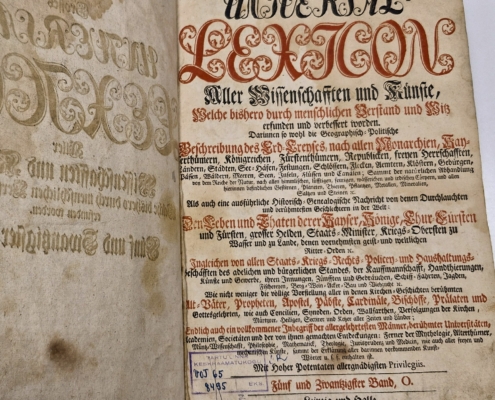 UNIVERSAL
LEXICON
Aller Wissenschafften und Künste,
Welche bißhero durch menschlichen Verstand und Witz
erfunden und verbessert worden.
Darinnen so wohl die Geographisch-Politische
Beschreibung des Erd-Creyses, nach allen Monarchien, Kay-
serthümern, Königreichen, Fürstenthümern, Republicken, freyen Herrschafften,
Ländern, Städten, See-Häfen, Festungen, Schlössern, Flecken, Aemtern, Klöstern, Gebürgen,
Pässen, Wäldern, Meeren, Seen, Inseln, Flüssen und Canälen; Sammt der natürlichen Abhandlung
von dem Reiche der Natur, nach allen himmlischen, lufftigen, feurigen, wässerigen und irrdischen Cörpern, und allen
hierinnen befindlichen Gestirnen, Planeten, Thieren, Pflantzen, Metallen, Mineralien,
Saltzen und Steinen ec.
Als auch eine ausführliche Historisch-Genealogische Nachricht von denen Durchlauchten
und berühmtesten Geschlechtern in der Welt:
Den Leben und Thaten derer Kayser, Könige, Chur-Fürsten
und Fürsten, grosser Helden, Staats-Minister, Kriegs-Obersten zu
Wasser und zu Lande, denen vornehmsten geist- und weltlichen
Ritter-Orden ec.
Ingleichen von allen Staats- Kriegs- Rechts- Policey- und Haußhaltungs-
Geschäfften des adelichen und bürgerlichen Standes, der Kauffmannschafft, Handthierungen,
Künste und Gewerbe, ihren Innungen, Zünfften und Gebräuchen, Schiff-Fahrten, Jagden,
Fischereyen, Berg- Wein- Acker-Bau und Viehzucht ec.
Wie nicht weniger die völlige Vorstellung aller in denen Kirchen-Geschichten berühmten
Alt-Väter, Propheten, Apostel, Päbste, Cardinäle, Bischöffe, Prälaten und
Gottesgelehrten, wie auch Concilien, Synoden, Orden, Wallfahrten, Verfolgungen der Kirchen,
Märtyrer, Heiligen, Sectirer und Ketzer aller Zeiten und Länder;
Endlich auch ein vollkommener Inbegriff der allergelehrtesten Männer, berühmter Universitäten,
Academien, Societäten und der von ihnen gemachten Entdeckungen: Ferner der Mythologie, Alterthümer,
Müntz-Wissenschafft, Philosophie, Mathematick, Theologie, Jurisprudentz und Medicin, wie auch aller freyen und
mechanischen Künste, sammt der Erklärung aller darinnen vorkommenden Kunst-
Wörter u. s. f. enthalten ist.
Mit Hoher Potentaten allergnädigsten Privilegiis.
Fünf und Zwanzigster Band, O.